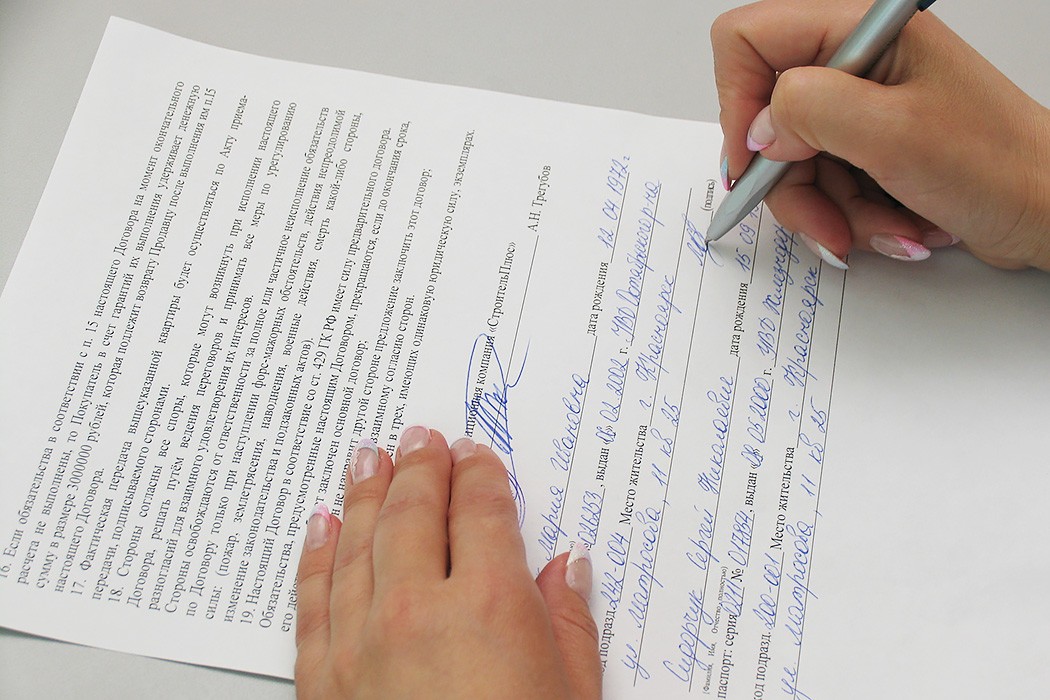 16. Если обязательства в соответствии с п. 15 настоящего Договора на момент окончательного
расчета не выполнены, то Покупатель в счет гарантий их выполнения удерживает денежную
сумму в размере 3000000 рублей, которая подлежит возврату Продавцу после выполнения им п.15
настоящего Договора.
17. Фактическая передача вышеуказанной квартиры будет осуществляться по Акту приема-
передачи, подписываемого сторонами.
18. Стороны согласны все споры, которые могут возникнуть при исполнении настоящего
Договора, решать путём ведения переговоров и принимать все меры по урегулированию
разногласий для взаимного удовлетворения их интересов.
Стороны освобождаются от ответственности за полное или частичное неисполнение обязательств
по Договору только при наступлении форс-мажорных обстоятельств, действия непреодолимой
силы: (пожар, землетрясения, наводнения, военные действия, смерть какой-либо стороны,
изменение законодательства и подзаконных актов).
19. Настоящий Договор в соответствие со ст. 429 ГК РФ имеет силу предварительного договора.
Обязательства, предусмотренные настоящим Договором, прекращаются, если до окончания срока,
его заключен основной договор;
не направит другой стороне предложение заключить этот договор;
взаимному согласию сторон.
в трех, имеющих одинаковую юридическую силу, экземплярах.
компания «СтроительПлюс»
А.Н. Трегубов
Мария Ивановна дата рождения 12.04.1972 г
026253, выдан «18» 02.2002 г. УВД Октябрьского р-на
подразд. 242-004 Место жительства г. Красноярск
ул. Матросова, 11 кв 25
(подпись)
Сидорчук Сергей Николаевич дата рождения 15 09
(Фамилия, Имя, Отчество полностью)
паспорт: серия № 017884, выдан «18» 05.2000 г. УВД Железнодор
код подразд. 200-001 Место жительства г. Красноярск
ул. Матросова, 11 кв 25